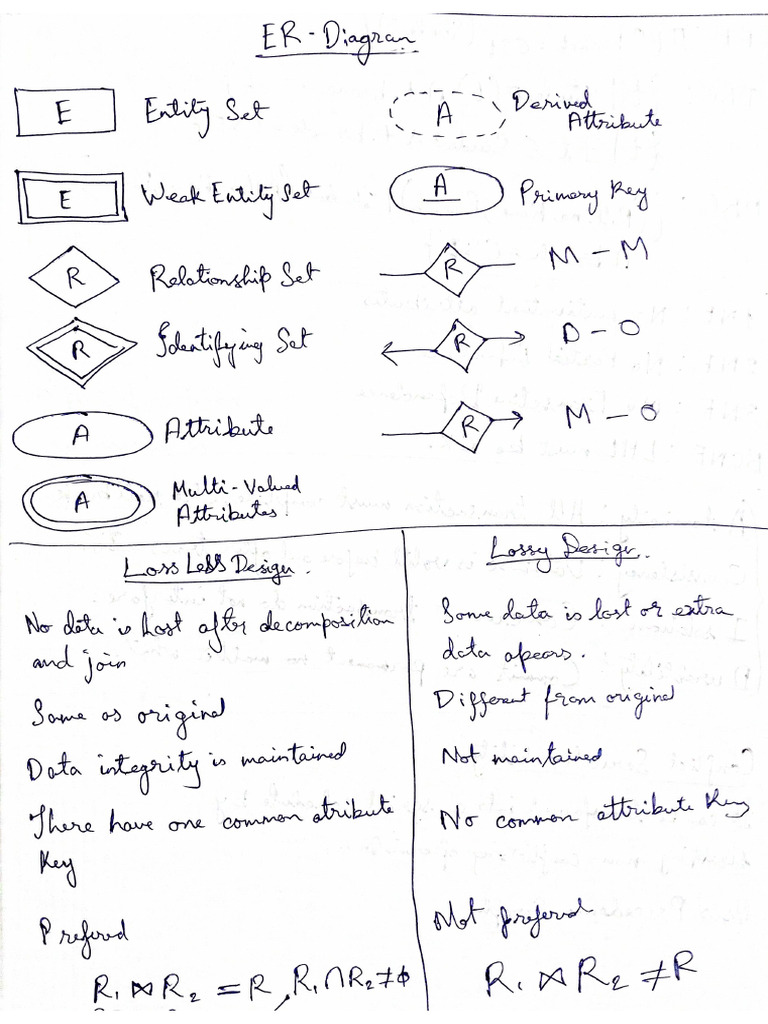 ER - Diagram
E Entity Set
A Derived Attribute
E Weak Entity Set
A Primary Key
R Relationship Set
R M - M
R Identifying Set
R O - O
A Attribute
R M - O
A Multi-Valued
Attributes.
Loss Less Design.
No data is lost after decomposition
and join
Same as original
Data integrity is maintained
There have one common atribute
Key
Prefered
R₁ ⋈ R₂ = R, R₁ ∩ R₂ ≠ ϕ
Lossy Design.
Some data is lost or extra
data apears.
Different from original
Not maintained
No common attribute Key
Not prefered
R₁ ⋈ R₂ ≠ R